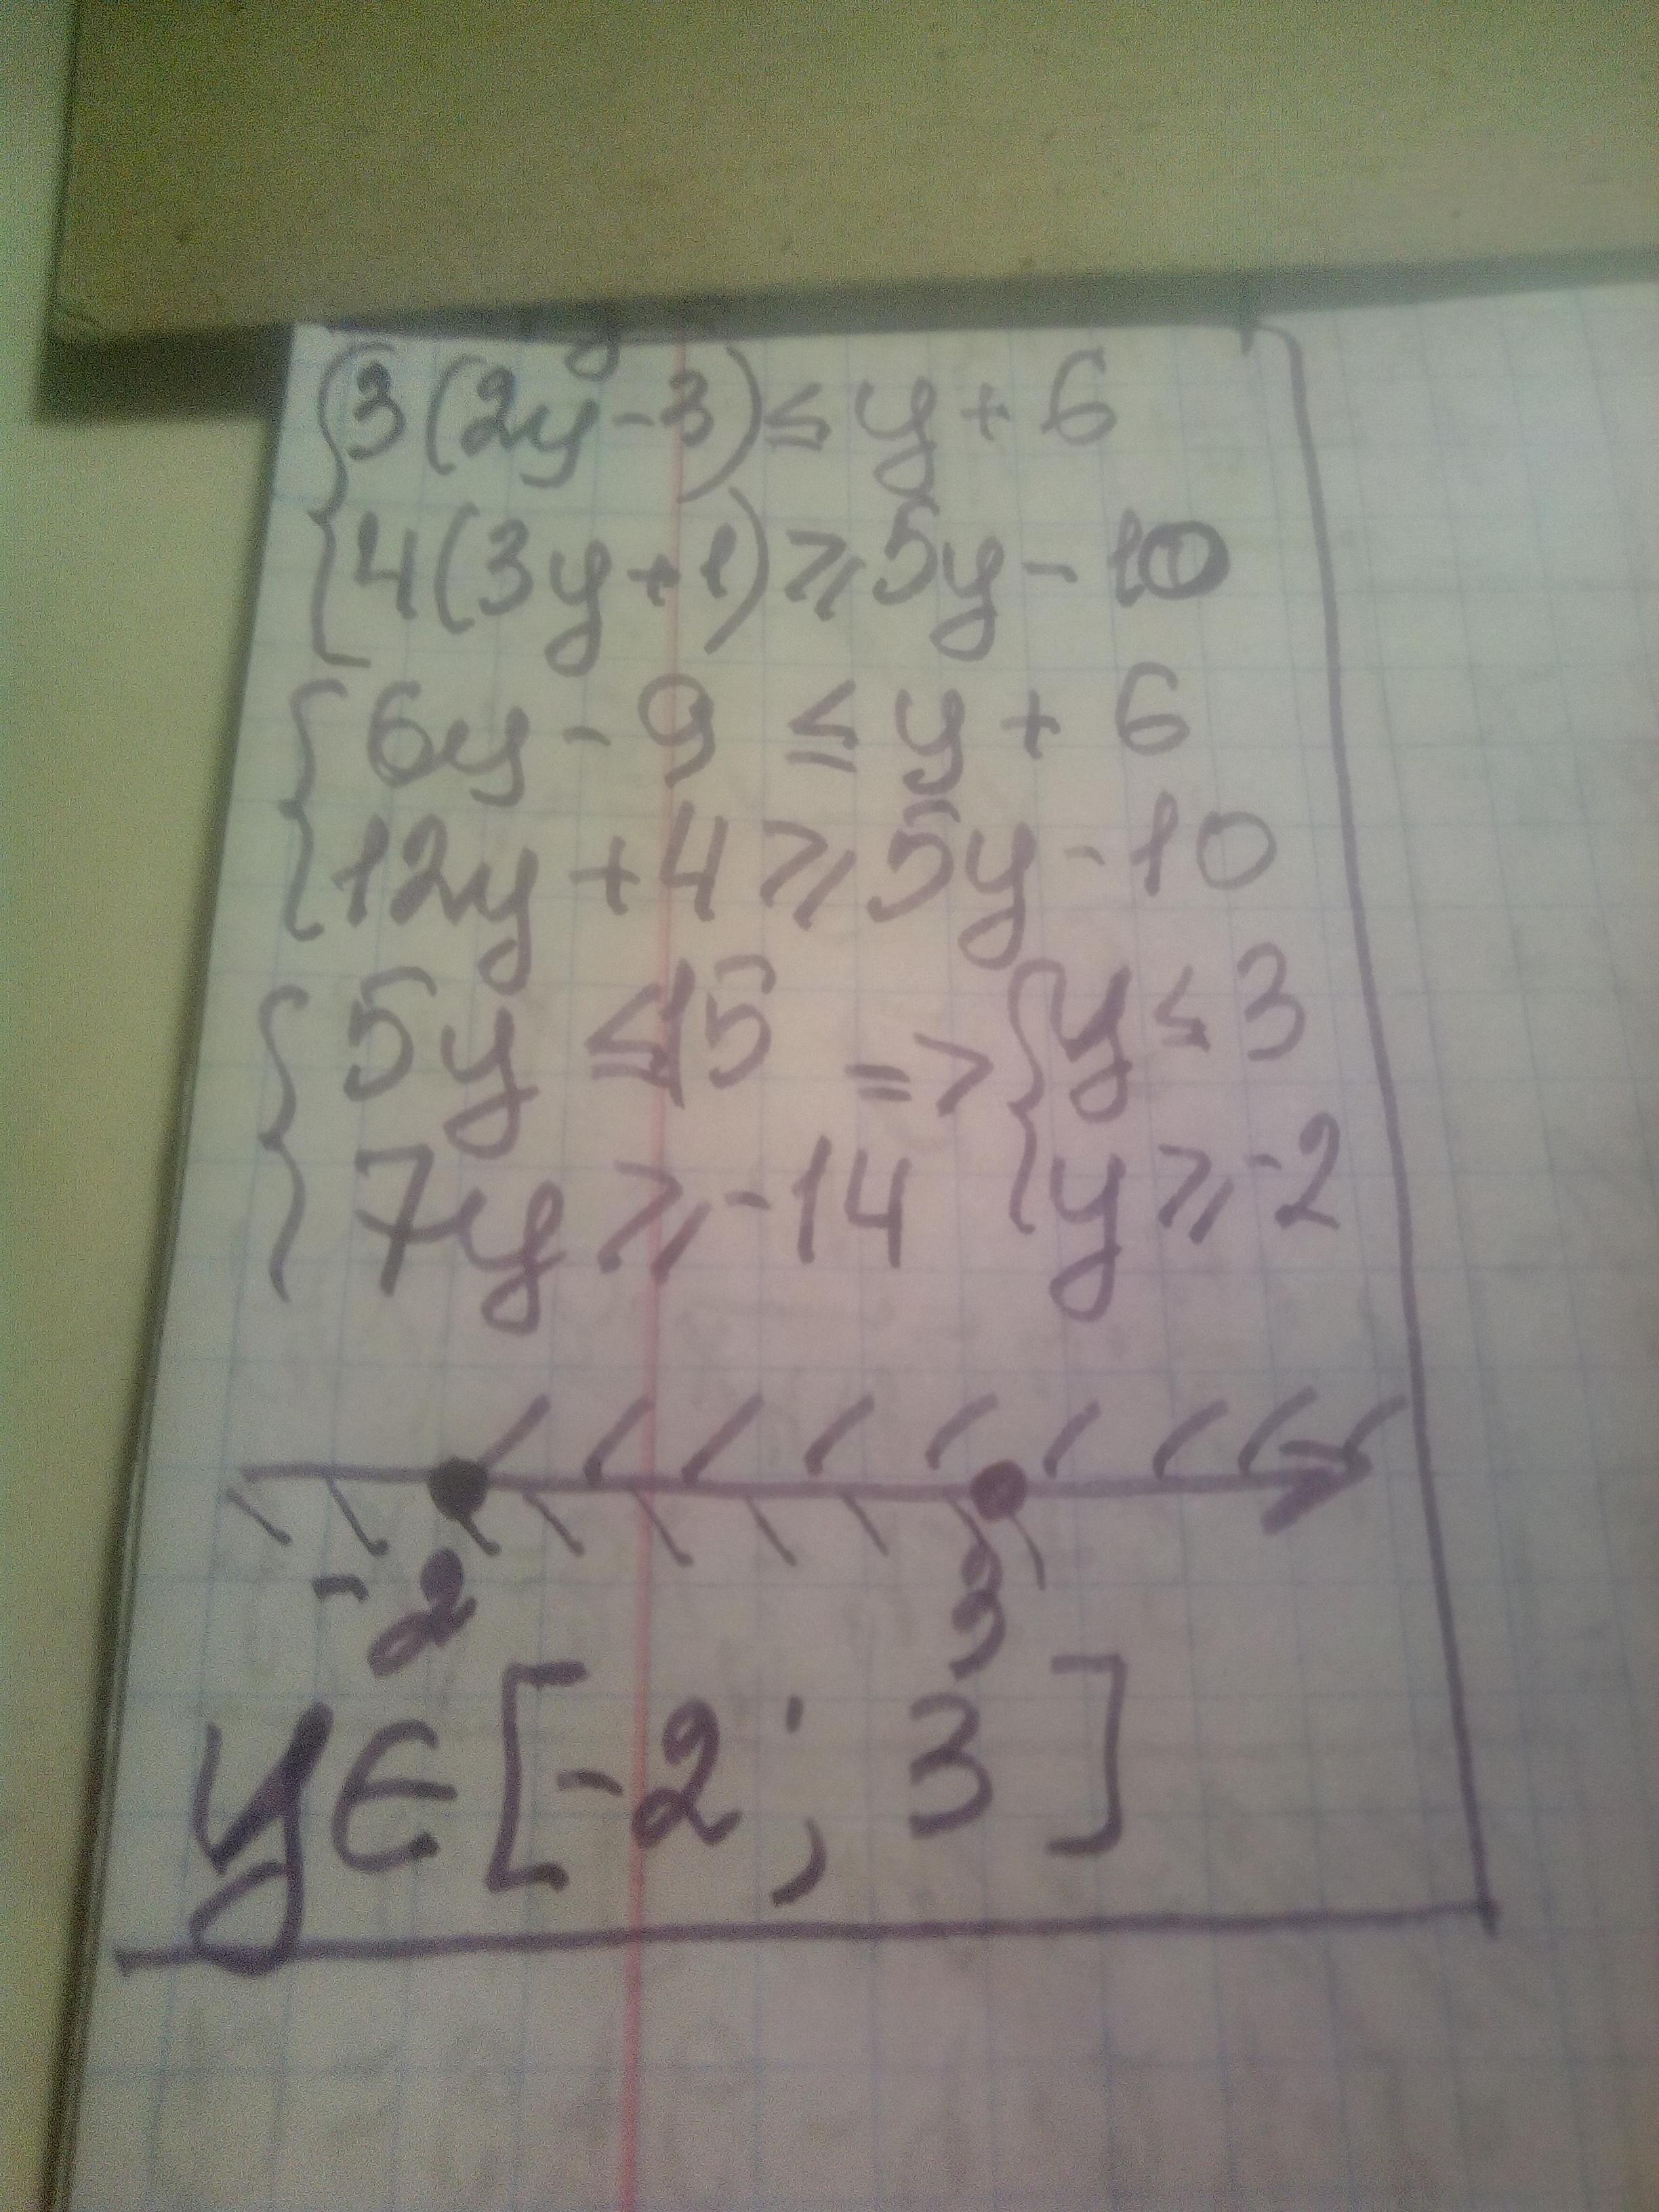 {3(2y-3)≤y+6
{4(3y+1)⩾5y-10
{6y-9≤y+6
{12y+4⩾5y-10
{5y≤15 => {y≤3
{7y⩾-14 {y⩾-2
-2 3
y∈[-2;3]